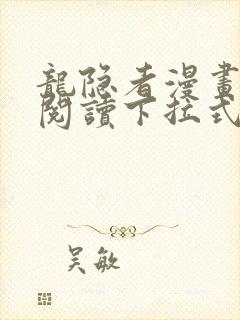 龍隐者漫畫
閱讀下拉式
吴敏